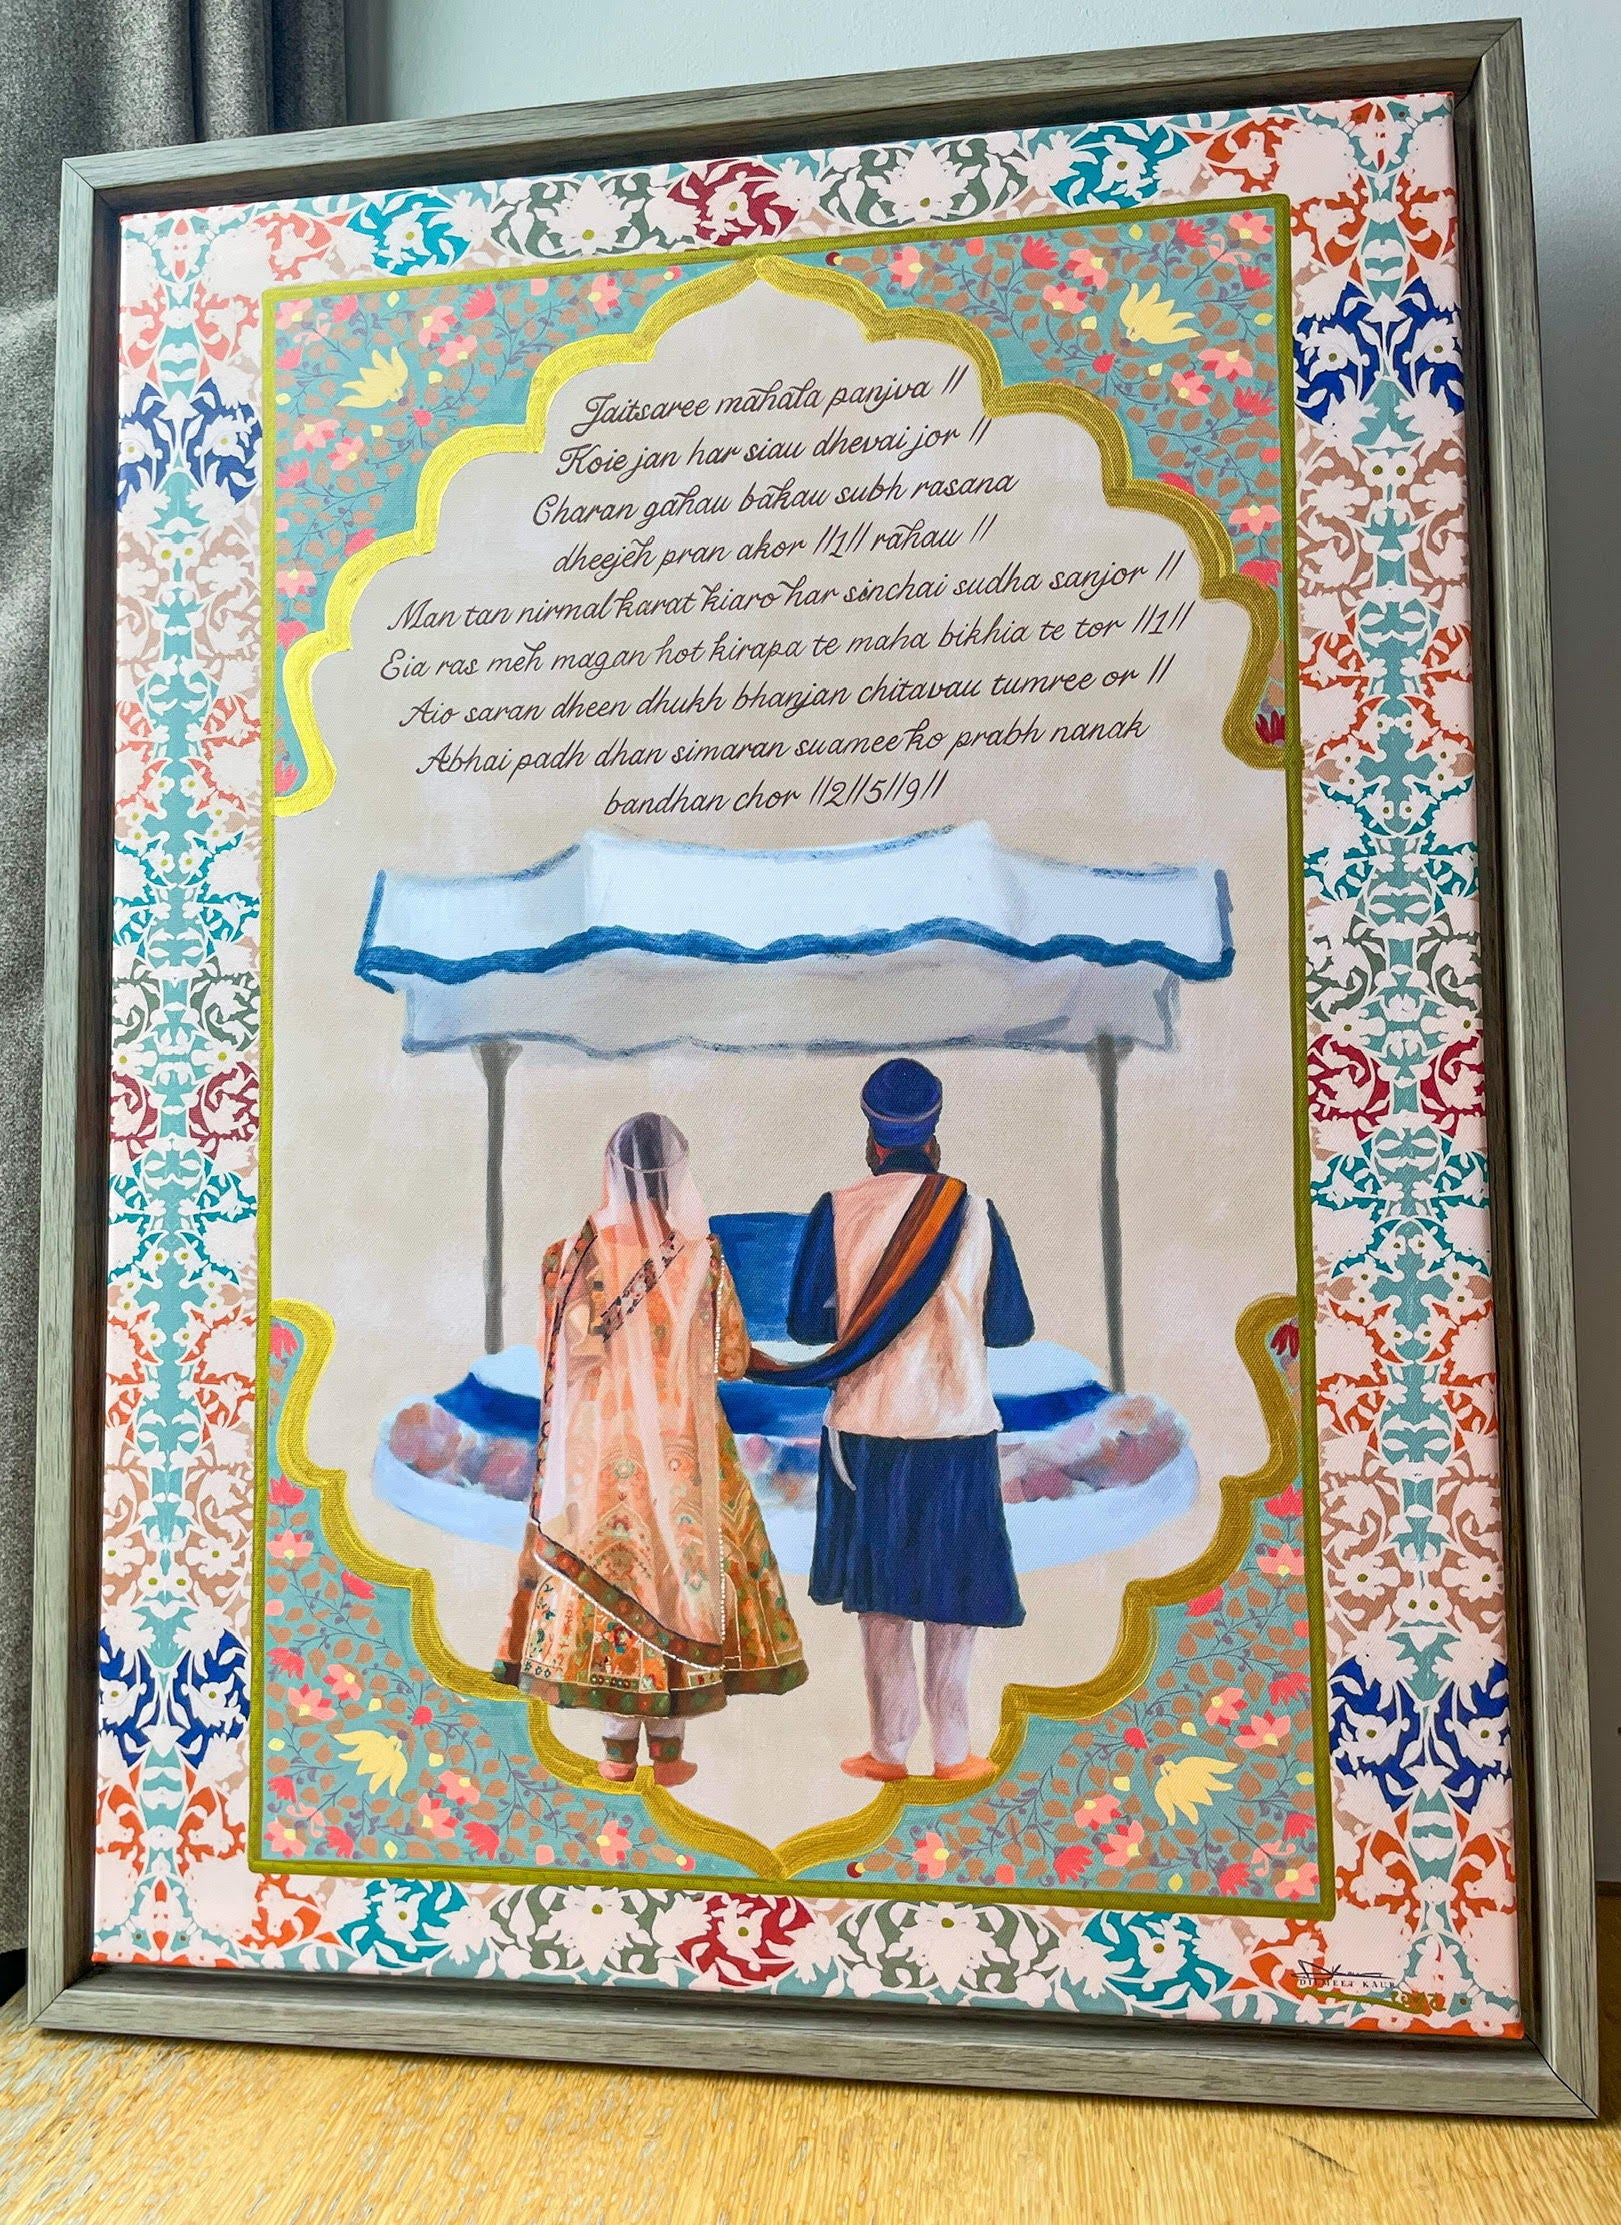 Jaitsaree mahala panjva ||
Koie jan har siau dhevai jor ||
Charan gahau bakau subh rasana
dheejeh pran akor ||1|| rahau ||
Man tan nirmal karat kiaro har sinchai sudha sanjor ||
Eia ras meh magan hot kirapa te maha bikhia te tor ||1||
Aio saran dheen dhukh bhanjan chitavau tumree or ||
Abhai padh dhan simaran suamee ko prabh nanak
bandhan chor ||2||5||9||
DILMEET KAUR